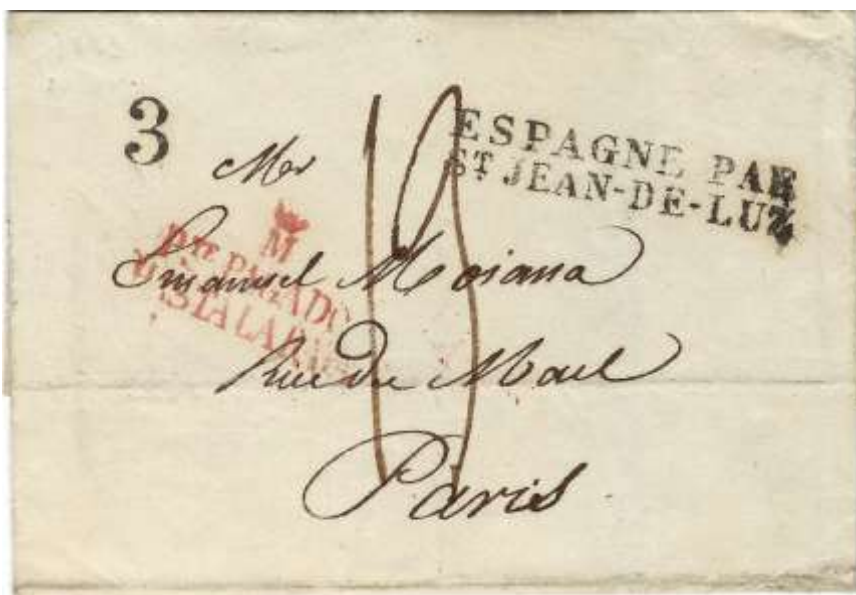 3
ESPAGNE PAR
ST JEAN-DE-LUZ
Mr
M
PAGADO
HASTA LA
Emanuel Moiana
Rue du Mail
Paris